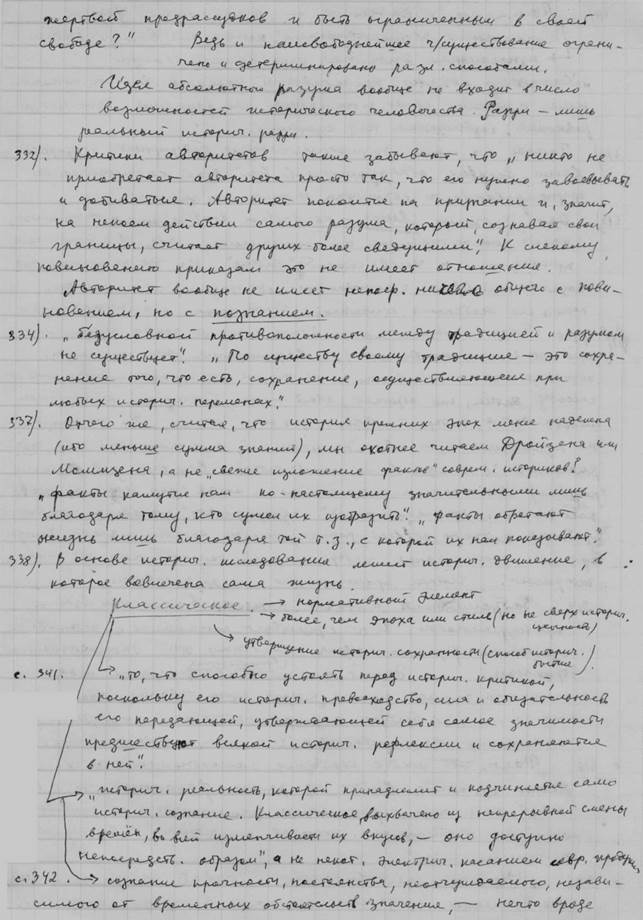 жертвой предрассудков и быть ограниченным в своей
свободе?" Ведь и наисвободнейшее ч/существование ограни-
чено и детерминировано разл. способами.
Идея абсолютного разума вообще не входит в число
возможностей исторического человечества. Разум – лишь
реальный историч. разум.
332). Критики авторитетов также забывают, что „никто не
приобретает авторитета просто так, что его нужно завоевывать
и добиваться. Авторитет покоится на признании и, значит,
на некоем действии самого разума, который, сознавая свои
границы, считает других более сведущими". К слепому
повиновению приказам это не имеет отношения.
Авторитет вообще не имеет непоср. ничего общего с пови-
новением, но с познанием.
334). „безусловной противоположности между традицией и разумом
не существует". „По существу своему традиция – это сохра-
нение того, что есть, сохранение, осуществляющееся при
любых историч. переменах."
337). Отчего же, считая, что история прежних эпох менее надежна
(ибо меньше сумма знаний), мы охотнее читаем Дройзена или
Моммзена, а не „свежие изложение фактов" соврем. историков?
„факты кажутся нам по-настоящему значительными лишь
благодаря тому, кто сумел их изобразить". „факты обретают
жизнь лишь благодаря той т.з., с которой их нам показывают."
338). В основе историч. исследования лежит историч. движение, в
которое вовлечена сама жизнь.
Классическое. → нормативный элемент
→ более, чем эпоха или стиль (но не сверх историч.
ценность)
→ утверждение историч. сохранности (способ историч.
бытия).
с. 341. → „то, что способно устоять перед историч. критикой,
поскольку его историч. превосходство, сила и обязательность
его передающей, утверждающей себя самое значимости
предшествует всякой историч. рефлексии и сохраняется
в ней".
→ „историч. реальность, которой принадлежит и подчиняется само
историч. сознание. Классическое, выхвачено из непрерывной смены
времён, во всей изменчивости их вкусов, – оно доступно
непосредств. образом", а не некот. электрич. касанием совр.
с. 342. → сознание прочности, постоянства, неотчуждаемого, незави-
симого от временных обстоятельств значения – нечто вроде